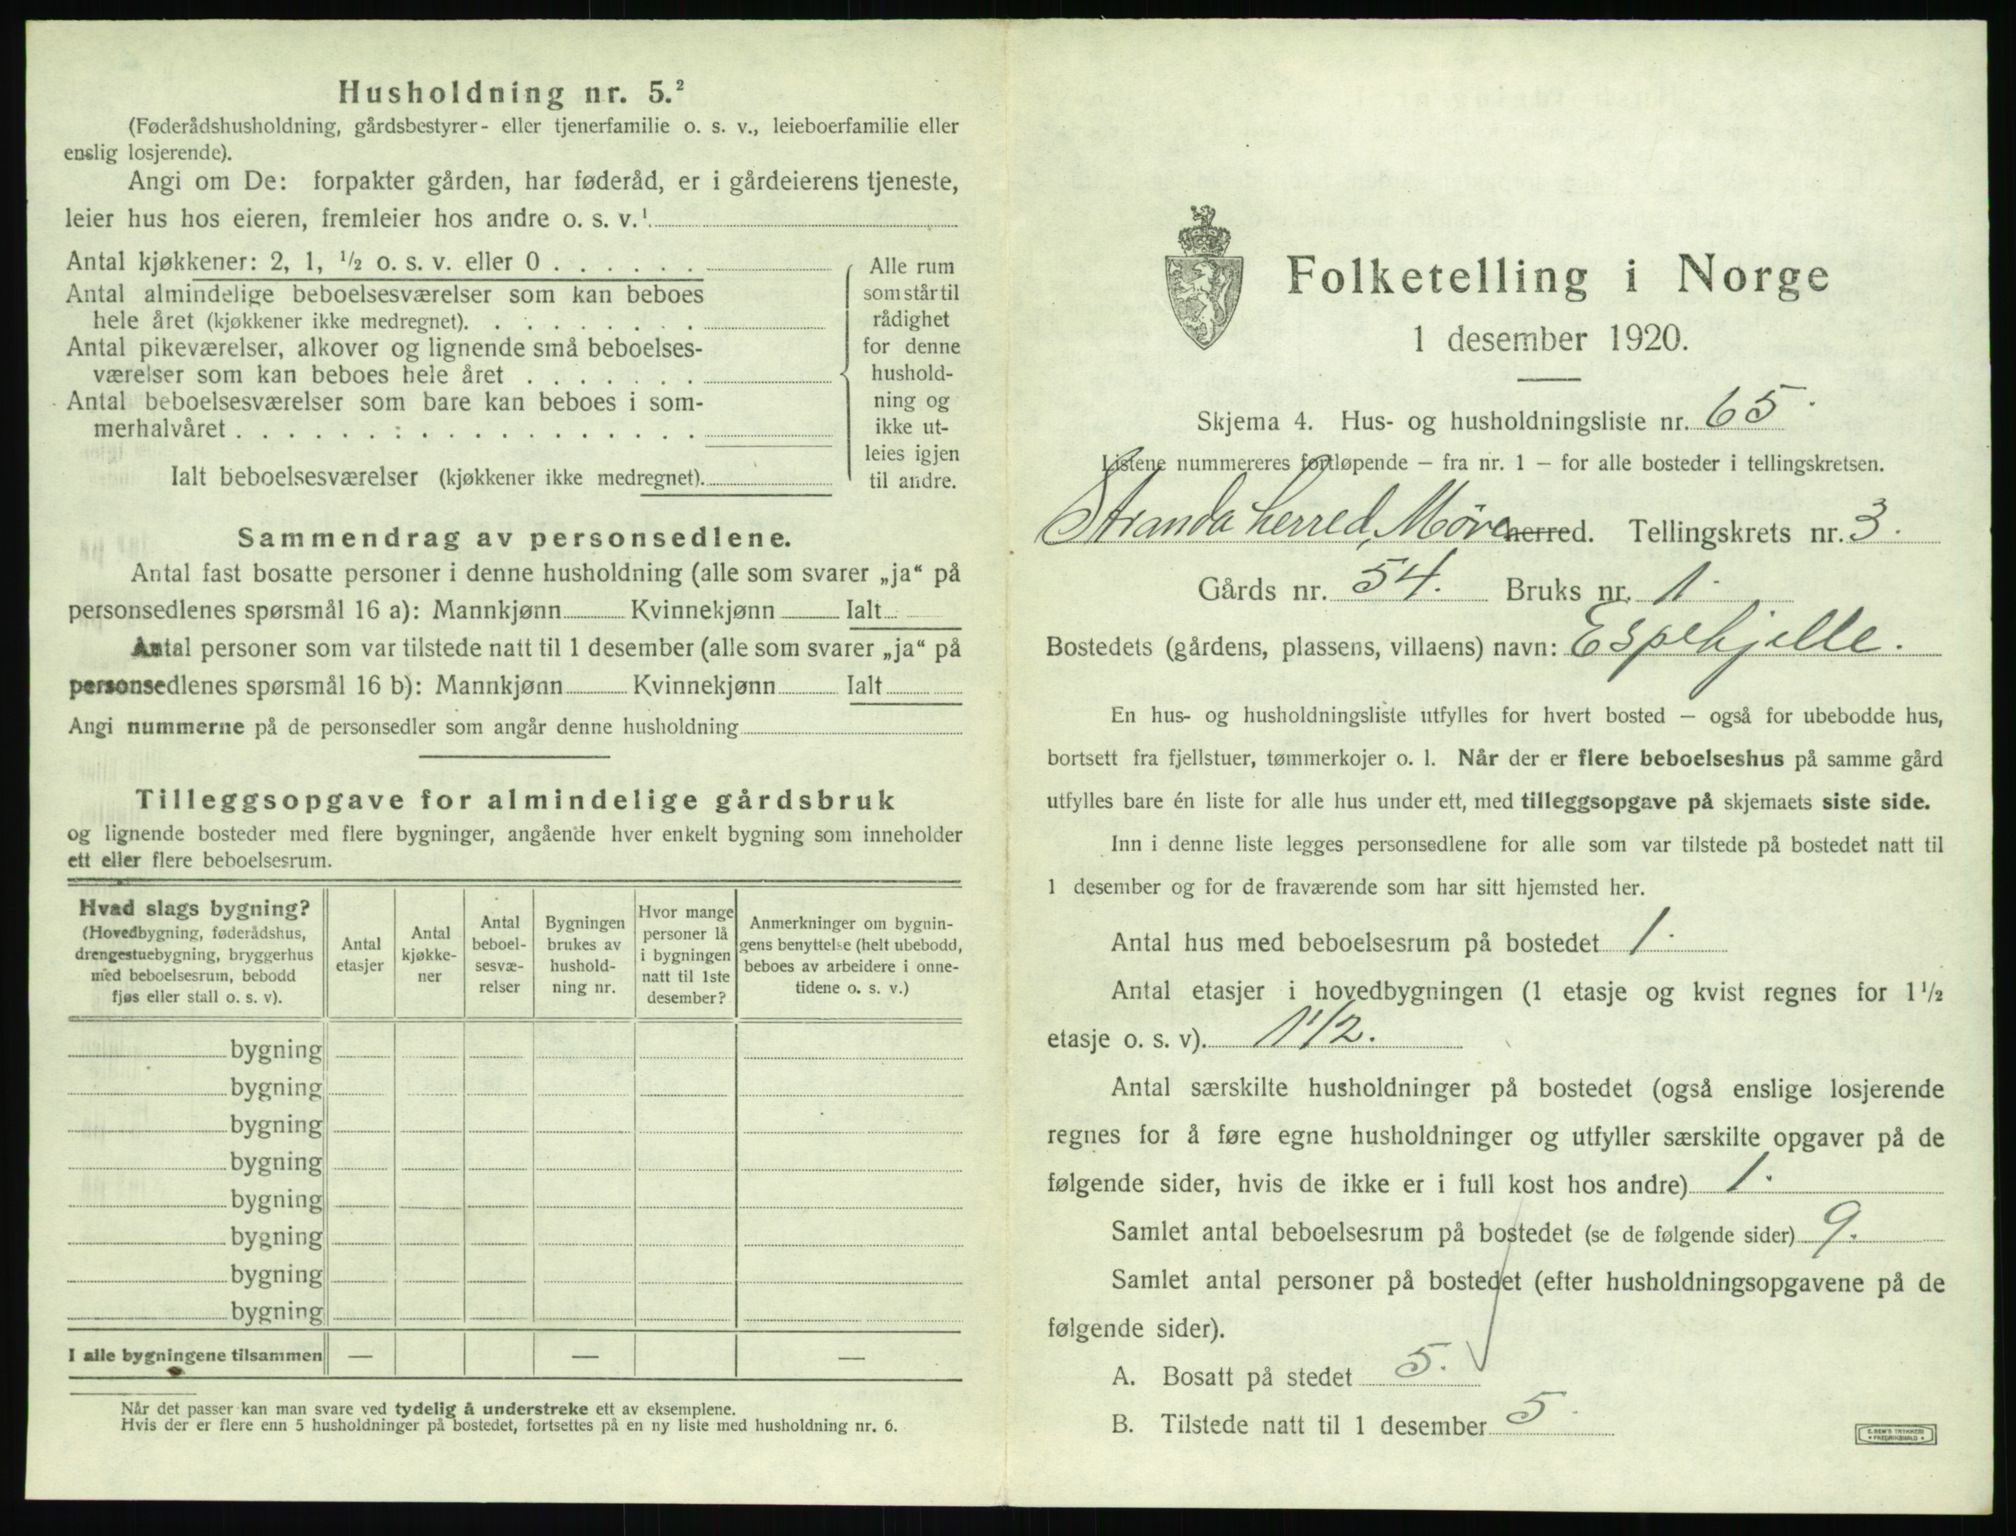 Husholdning nr. 5.²
(Føderådshusholdning, gårdsbestyrer- eller tjenerfamilie o. s. v., leieboerfamilie eller
enslig losjerende).
Angi om De: forpakter gården, har føderåd, er i gårdeierens tjeneste,
leier hus hos eieren, fremleier hos andre o. s. v.¹
Antal kjøkkener: 2, 1, ½ o. s. v. eller 0 . . . . . .
Antal almindelige beboelsesværelser som kan beboes
hele året (kjøkkener ikke medregnet). . . . . . . . .
Antal pikeværelser, alkover og lignende små beboelses-
værelser som kan beboes hele året . . . . . . .
Antal beboelsesværelser som bare kan beboes i som-
merhalvåret . . . . . . . . . . . . . . . . .
Ialt beboelsesværelser (kjøkkener ikke medregnet).
Alle rum
som står til
rådighet
for denne
hushold-
ning og
ikke ut-
leies igjen
til andre.
Sammendrag av personsedlene.
Antal fast bosatte personer i denne husholdning (alle som svarer „ja“ på
personsedlenes spørsmål 16 a): Mannkjønn Kvinnekjønn Ialt
Antal personer som var tilstede natt til 1 desember (alle som svarer „ja“ på
personsedlenes spørsmål 16 b): Mannkjønn Kvinnekjønn Ialt
Angi nummerne på de personsedler som angår denne husholdning
Tilleggsopgave for almindelige gårdsbruk
og lignende bosteder med flere bygninger, angående hver enkelt bygning som inneholder
ett eller flere beboelsesrum.
Hvad slags bygning?
(Hovedbygning, føderådshus,
drengestuebygning, bryggerhus
med beboelsesrum, bebodd
fjøs eller stall o. s. v).
Antal
etasjer
Antal
kjøkke-
ner
Antal
beboel-
sesvæ-
relser
Bygningen
brukes av
hushold-
ning nr.
Hvor mange
personer lå
i bygningen
natt til 1ste
desember?
Anmerkninger om bygnin-
gens benyttelse (helt ubebodd,
beboes av arbeidere i onne-
tidene o. s. v.)
bygning
bygning
bygning
bygning
bygning
bygning
bygning
bygning
I alle bygningene tilsammen — — —
Når det passer kan man svare ved tydelig å understreke ett av eksemplene.
Hvis der er flere enn 5 husholdninger på bostedet, fortsettes på en ny liste med husholdning nr. 6.
Folketelling i Norge
1 desember 1920.
Skjema 4. Hus- og husholdningsliste nr. 65.
Listene nummereres fortløpende – fra nr. 1 – for alle bosteder i tellingskretsen.
Stranda herred, Møre herred. Tellingskrets nr. 3.
Gårds nr. 54. Bruks nr. 1.
Bostedets (gårdens, plassens, villaens) navn: Espehjelle.
En hus- og husholdningsliste utfylles for hvert bosted – også for ubebodde hus,
bortsett fra fjellstuer, tømmerkojer o. l. Når der er flere beboelseshus på samme gård
utfylles bare én liste for alle hus under ett, med tilleggsopgave på skjemaets siste side.
Inn i denne liste legges personsedlene for alle som var tilstede på bostedet natt til
1 desember og for de fraværende som har sitt hjemsted her.
Antal hus med beboelsesrum på bostedet 1.
Antal etasjer i hovedbygningen (1 etasje og kvist regnes for 1½
etasje o. s. v). 1 1/2.
Antal særskilte husholdninger på bostedet (også enslige losjerende
regnes for å føre egne husholdninger og utfyller særskilte opgaver på de
følgende sider, hvis de ikke er i full kost hos andre) 1.
Samlet antal beboelsesrum på bostedet (se de følgende sider) 9.
Samlet antal personer på bostedet (efter husholdningsopgavene på de
følgende sider).
A. Bosatt på stedet 5.
B. Tilstede natt til 1 desember 5.